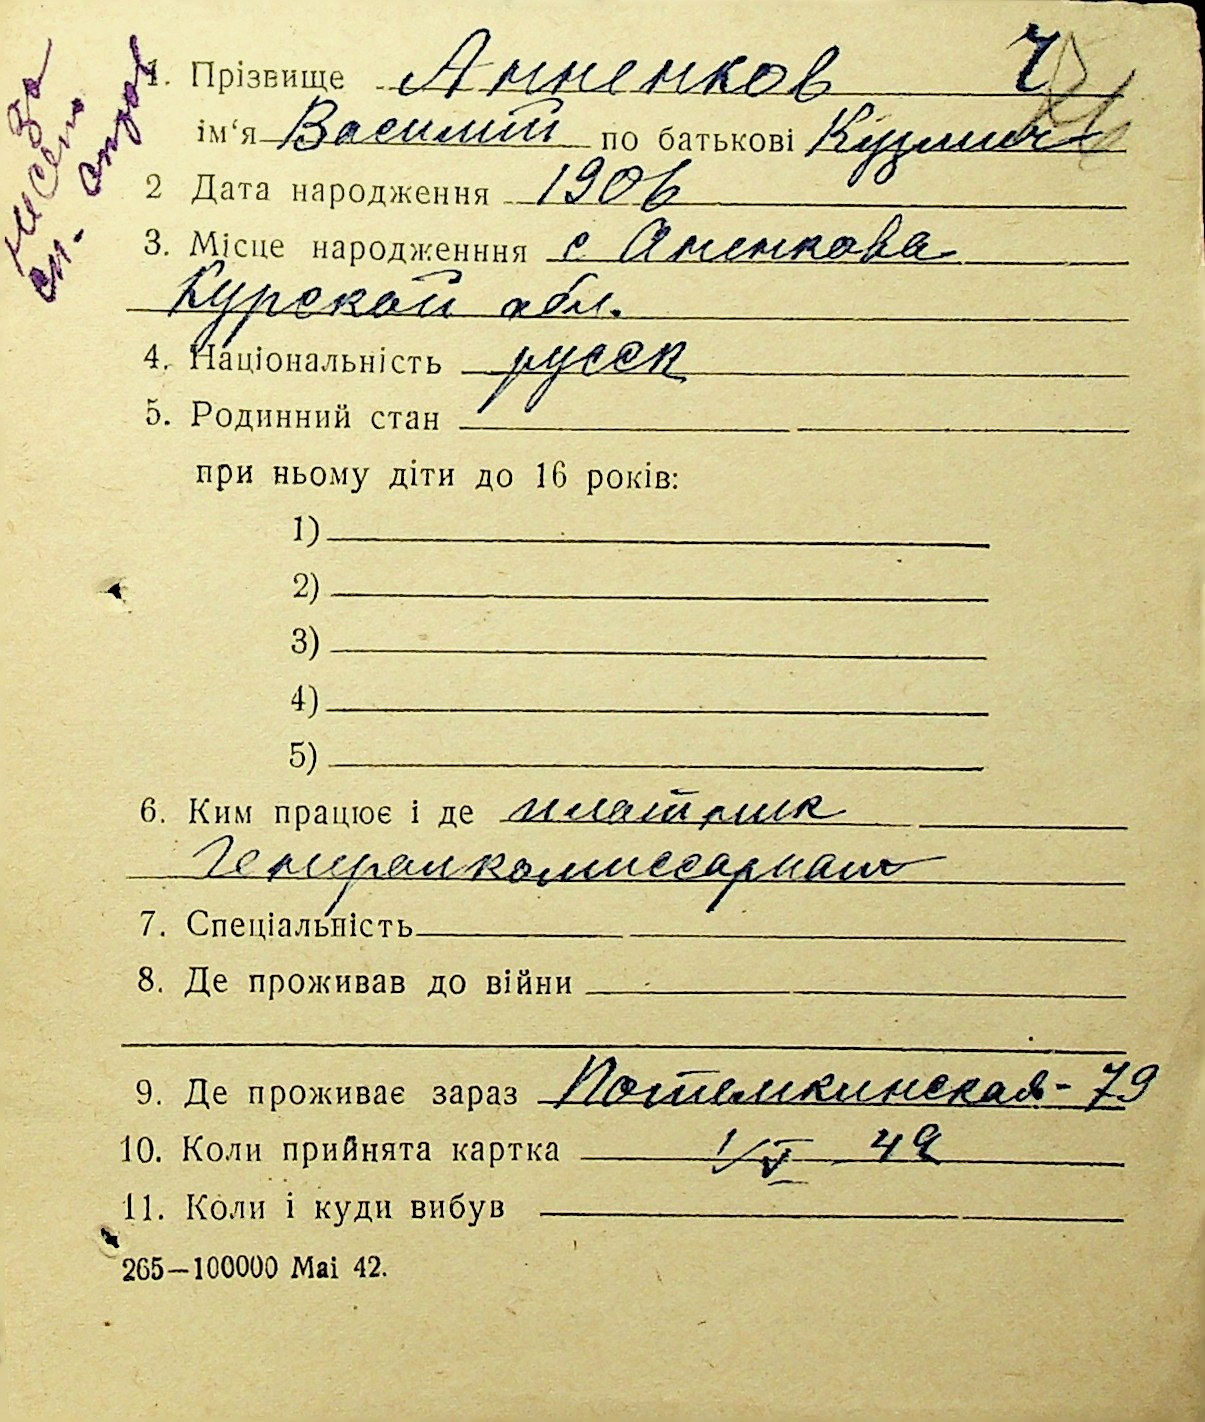 1. Прізвище Анненков Ч
ім'я Василий по батькові Кузмич
2 Дата народження 1906
3. Місце народженння с Аненкова
Курской обл.
4. Національність русск
5. Родинний стан
при ньому діти до 16 років:
1)
2)
3)
4)
5)
6. Ким працює і де
Генералкомиссариат
7. Спеціальність
8. Де проживав до війни
9. Де проживає зараз Потемкинская-79
10. Коли прийнята картка 1/V 42
11. Коли і куди вибув
265—100000 Mai 42.